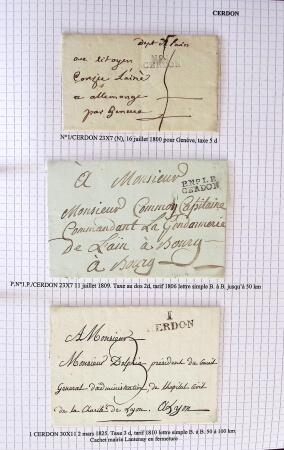 CERDON
Dept de l'ain
au citoyen
N°1
CERDON
a allemagne
par Geneve
N°1/CERDON 23X7 (N), 16 juillet 1800 pour Genève, taxe 5 d
à Monsieur
P.N°I.P.
CERDON
Monsieur Commoy Capitaine
Commandant La Gendarmerie
De Lain à Bourg
à Bourg
P.N°1.P./CERDON 23X7 11 juillet 1809. Taxe au dos 2d, tarif 1806 lettre simple B. à B. jusqu'à 50 km
A Monsieur
1
CERDON
Monsieur Delphin président du Conseil
Général d'administration de l'hopital Civil
de la Charité de Lyon. A Lyon
1 CERDON 30X11 2 mars 1825. Taxe 3 d, tarif 1810 lettre simple B. à B. 50 à 100 km
Cachet mairie Lantenay en fermeture